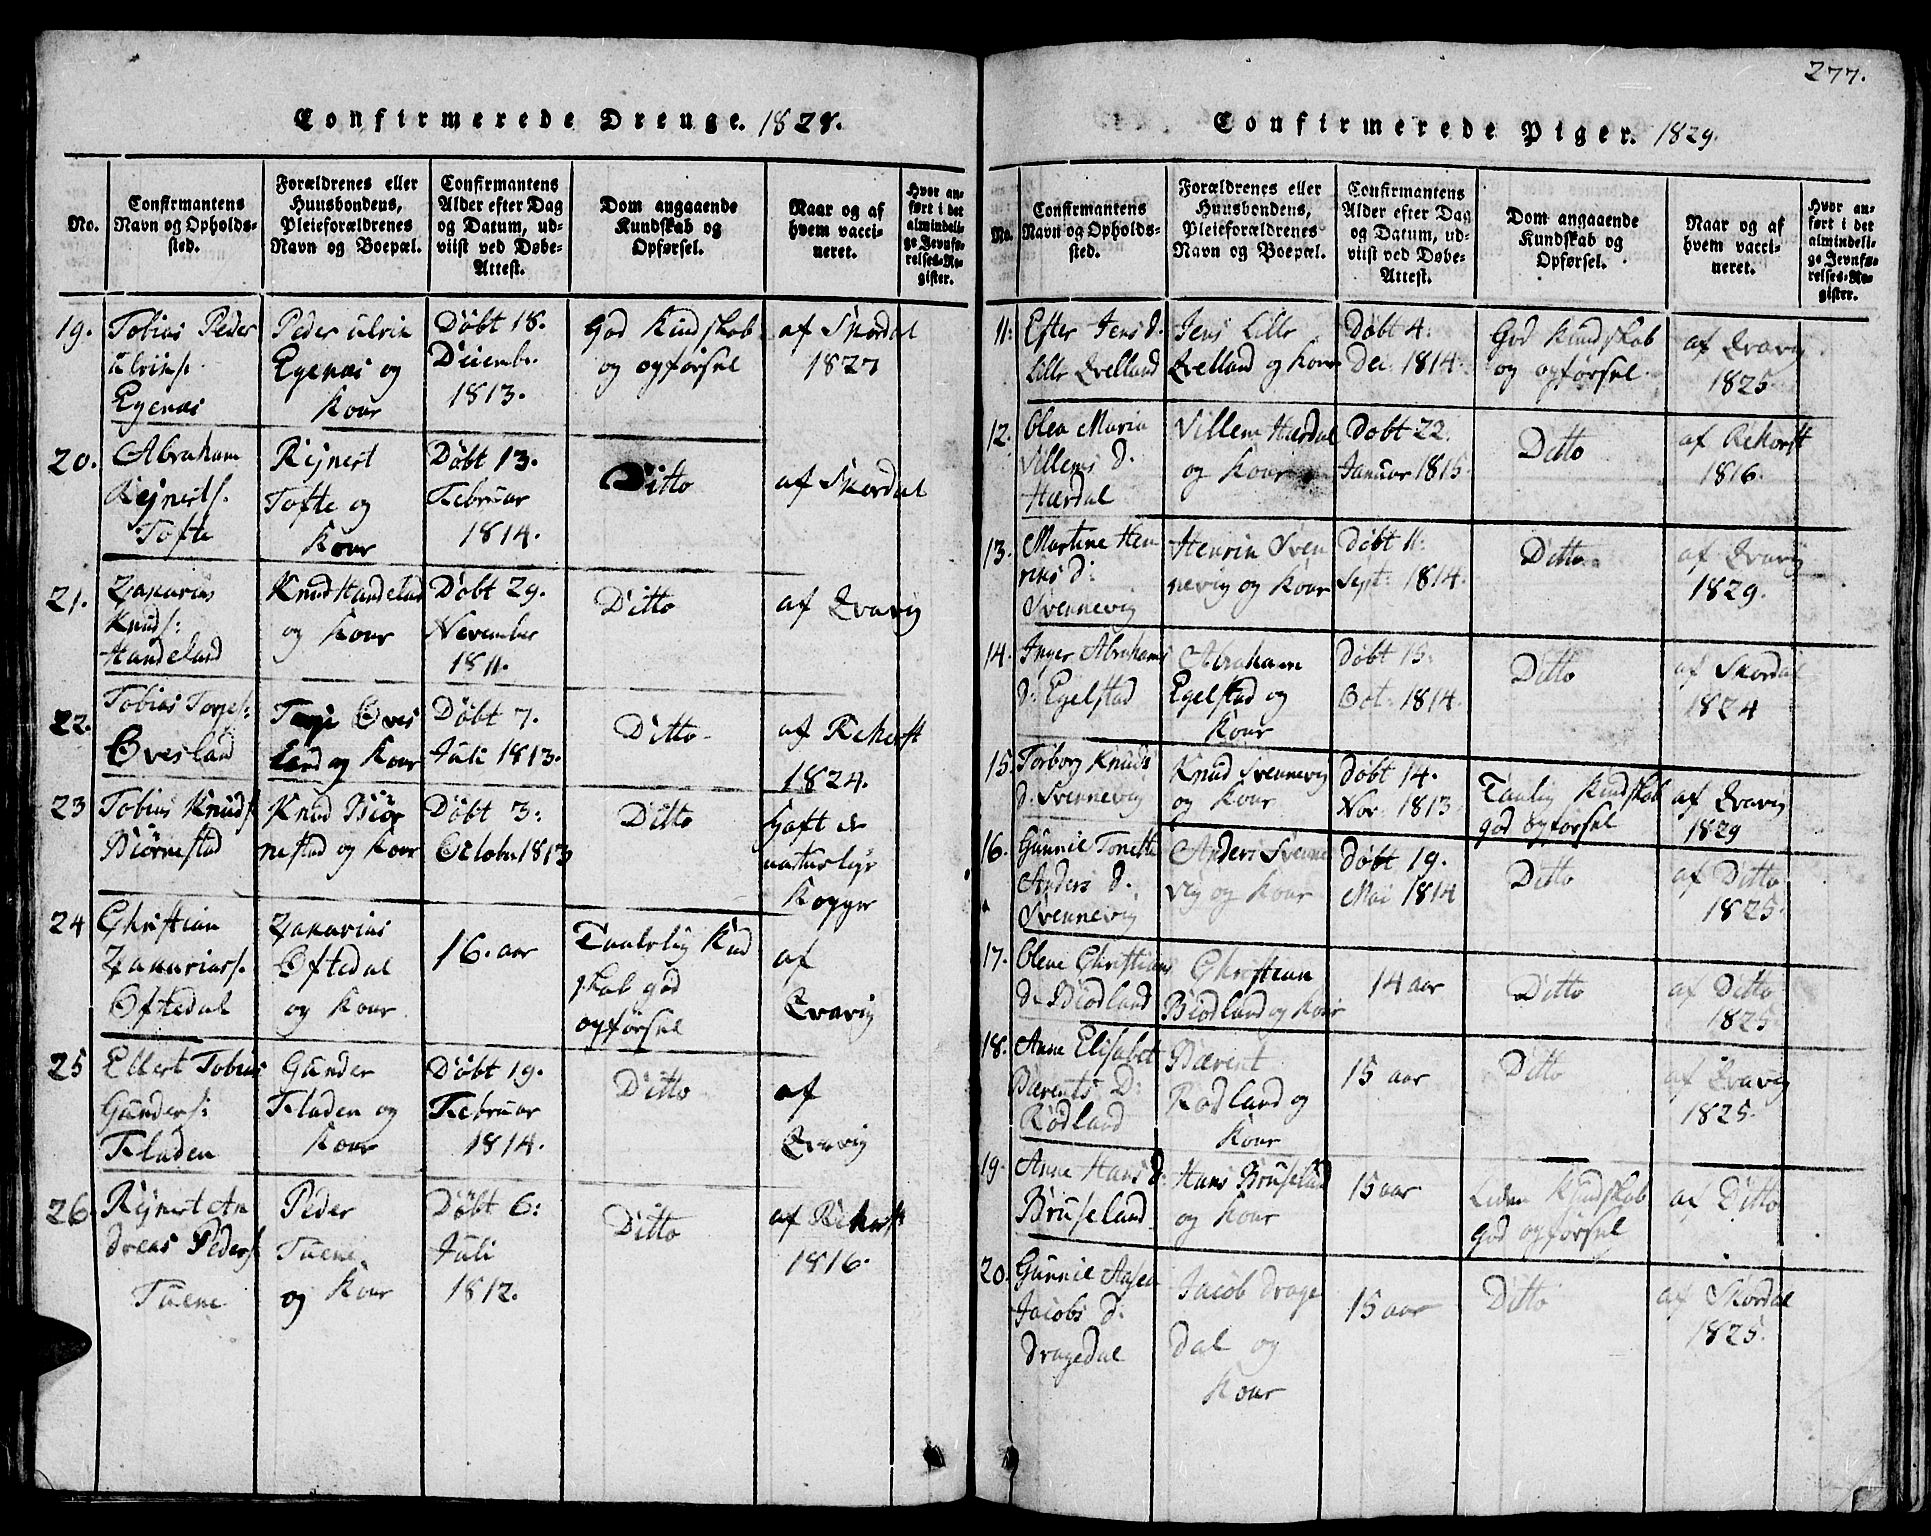 Confirmerede Drenge. 1828.
No.
Confirmantens
Navn og Opholds-
sted.
Forældrenes eller
Huusbondens,
Pleieforældrenes
Navn og Boepæl.
Confirmantens
Alder efter Dag
og Datum, ud-
viist ved Døbe-
Attest.
Dom angaaende
Kundskab og
Opførsel.
Naar og af
hvem vacci-
neret.
Hvor an-
ført i det
almindeli-
ge Jevnfø-
relses-Re-
gister.
19.
Tobias Peder
Ulriks.
Egenæs
Peder Ulrik
Egenæs og
Kone
Døbt 18.
Decembr.
1813.
God Kundskab
og opførsel
af Skordal
1827
20.
Abraham
Rejnerts.
Tofte
Rejnert
Tofte og
Kone
Døbt 13.
Februar
1814.
Ditto
af Skordal
21.
Zakarias
Knuds:
Handeland
Knud Handeland
og Kone
Døbt 29.
November
1811.
Ditto
af Qvavig
22.
Tobias Terjes:
Øvesland
Terje Øves
land og Kone
Døbt 7.
Juli 1813.
Ditto
af Rekorst
1824.
23
Tobias Knuds
Biørnestad
Knud Biør
nestad og Kone
Døbt 3:
October 1813
Ditto
haft de
naturlige
Kopper
24
Christian
Zakarias.
Oftedal
Zakarias
Oftedal
og Kone
16. aar
Taalelig Kund
skab god
opførsel
af
Qvavig
25
Elbert Tobias
Gunders:
Fladen
Gunder
Fladen og
Kone
Døbt 19.
Februar
1814.
Ditto
af
Qvavig
26.
Rejnert An
dreas Peders.
Tuene
Peder
Tuene
og Kone
Døbt 6:
Juli
1812.
Ditto
af Rekorst
1816.
277.
Confirmerede Piger. 1829.
No.
Confirmantens
Navn og Opholds-
sted.
Forældrenes eller
Huusbondens,
Pleieforældrenes
Navn og Boepæl.
Confirmantens
Alder efter Dag
og Datum, ud-
viist ved Døbe-
Attest.
Dom angaaende
Kundskab og
Opførsel.
Naar og af
hvem vacci-
neret.
Hvor an-
ført i det
almindeli-
ge Jevnfø-
relses-Re-
gister.
11:
Ester Jens d.
Lille Qvelland
Jens Lille
Qvelland og Kone
Døbt 4:
Dec. 1814.
God Kundskab
og opførsel.
af Qvavig
1825
12.
Olea Maria
Villems d.
Hærdal
Villem Hærdal
og Kone
Døbt 22.
Januar 1815
Ditto
af Rekorst
1816.
13.
Martine Hen
riks d:
Svennevig
Henrik Sven
nevig og Kone
Døbt 11:
Sept: 1814.
Ditto
af Qvavig
1829.
14.
Inger Abrahams
d: Egelstad
Abraham
Egelstad og
Kone
Døbt 15:
Oct: 1814.
Ditto
af Skordal
1824
15.
Torborg Knuds
d. Svennevig
Knud Svennevig
og Kone
Døbt 14.
Nov. 1813
Taalig Kundskab
god opførsel
af Qvavig
1829
16.
Gunnil Tonette
Anders d.
Svennevig
Anders Svenne
vig og Kone
Døbt 19.
Mai 1814
Ditto
af Ditto
1825.
17.
Olene Christians
d. Biodland
Christian
Biodland og Kone
14 aar
Ditto
af Ditto
1825
18.
Anne Elisabet
Bærents D:
Rødland
Bærent
Rødland og
Kone
15 aar
Ditto
af Qvavig
1825.
19.
Anne Hans d:
Bruseland
Hans Bruseland
og Kone
15 aar
Liden Kundskab
god opførsel
af Ditto
20.
Gunnil Aasea
Jacobs d:
Dragedal
Jacob Drage
dal og
Kone
15 aar
Ditto
af Skordal
1825.